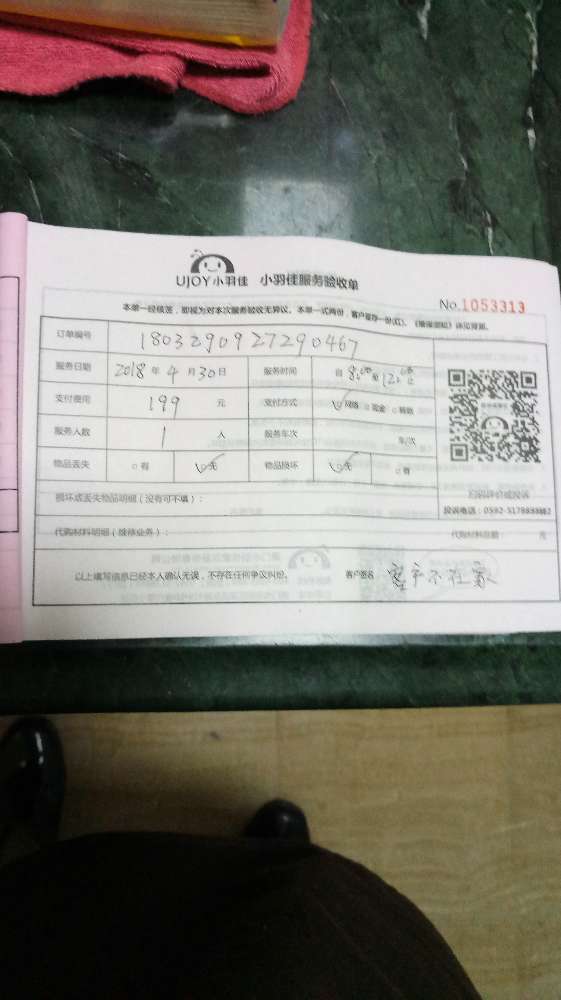 UJOY小羽佳 小羽佳服务验收单
No.1053313
本单一经核签，即视为对本次服务验收无异议。本单一式两份，客户留存一份(红)。
订单编号 1803290927290467
服务日期 2018年4月30日 服务时间 自8:00至12:00止
支付费用 199 元 支付方式 ☑网络 □现金 □转账
服务人数 1 人 服务车次 车/次
物品丢失 □有 ☑无 物品损坏 ☑无 □有
扫码评价或投诉
损坏或丢失物品明细（没有可不填）：
投诉电话：0592-5178888转2
代购材料明细（维修业务）： 代购材料总额 元
以上填写信息已经本人确认无误，不存在任何争议纠纷。 客户签名： 客户不在家